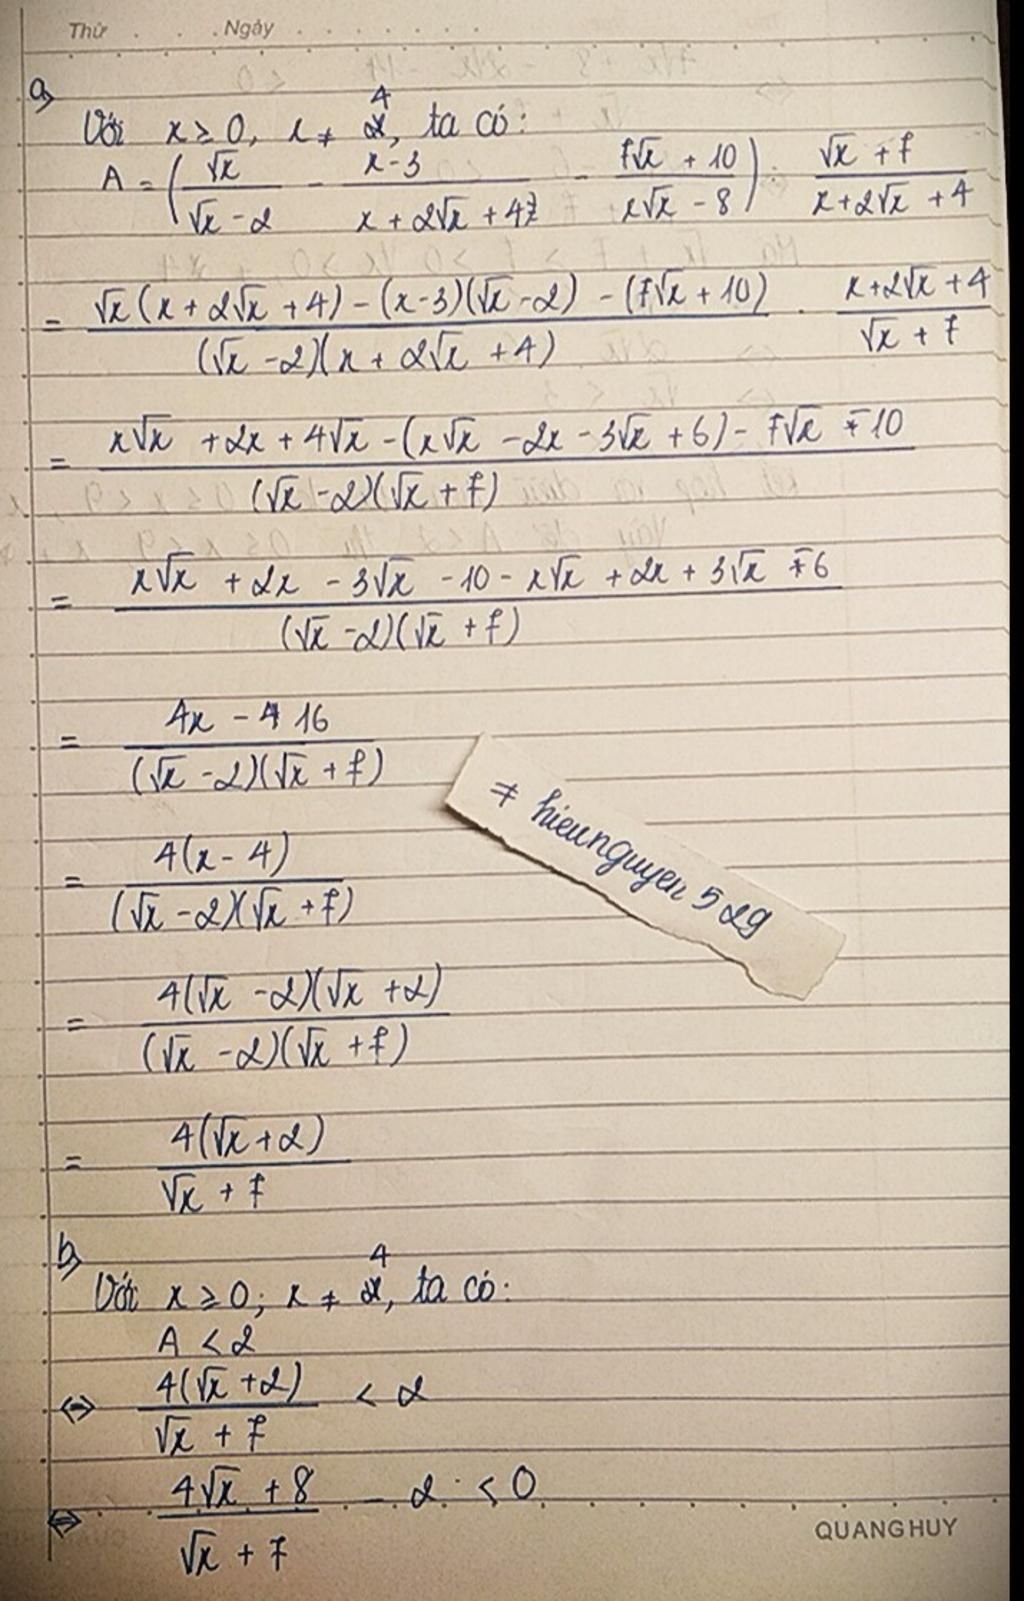 Thứ . . . Ngày . . . . . . .
a)
Với x ≥ 0, x ≠ 4, ta có:
A = (√x/(√x - 2) - (x - 3)/(x + 2√x + 4) - (7√x + 10)/(x√x - 8)) : (√x + 7)/(x + 2√x + 4)
= (√x(x + 2√x + 4) - (x - 3)(√x - 2) - (7√x + 10))/((√x - 2)(x + 2√x + 4)) . (x + 2√x + 4)/(√x + 7)
= (x√x + 2x + 4√x - (x√x - 2x - 3√x + 6) - 7√x - 10)/((√x - 2)(√x + 7))
= (x√x + 2x - 3√x - 10 - x√x + 2x + 3√x - 6)/((√x - 2)(√x + 7))
= (4x - 16)/((√x - 2)(√x + 7))
= 4(x - 4)/((√x - 2)(√x + 7))
= 4(√x - 2)(√x + 2)/((√x - 2)(√x + 7))
= 4(√x + 2)/(√x + 7)
≠ hieunguyen529
b)
Với x ≥ 0; x ≠ 4, ta có:
A < 2
⇔ 4(√x + 2)/(√x + 7) < 2
⇔ (4√x + 8)/(√x + 7) - 2 < 0
QUANG HUY